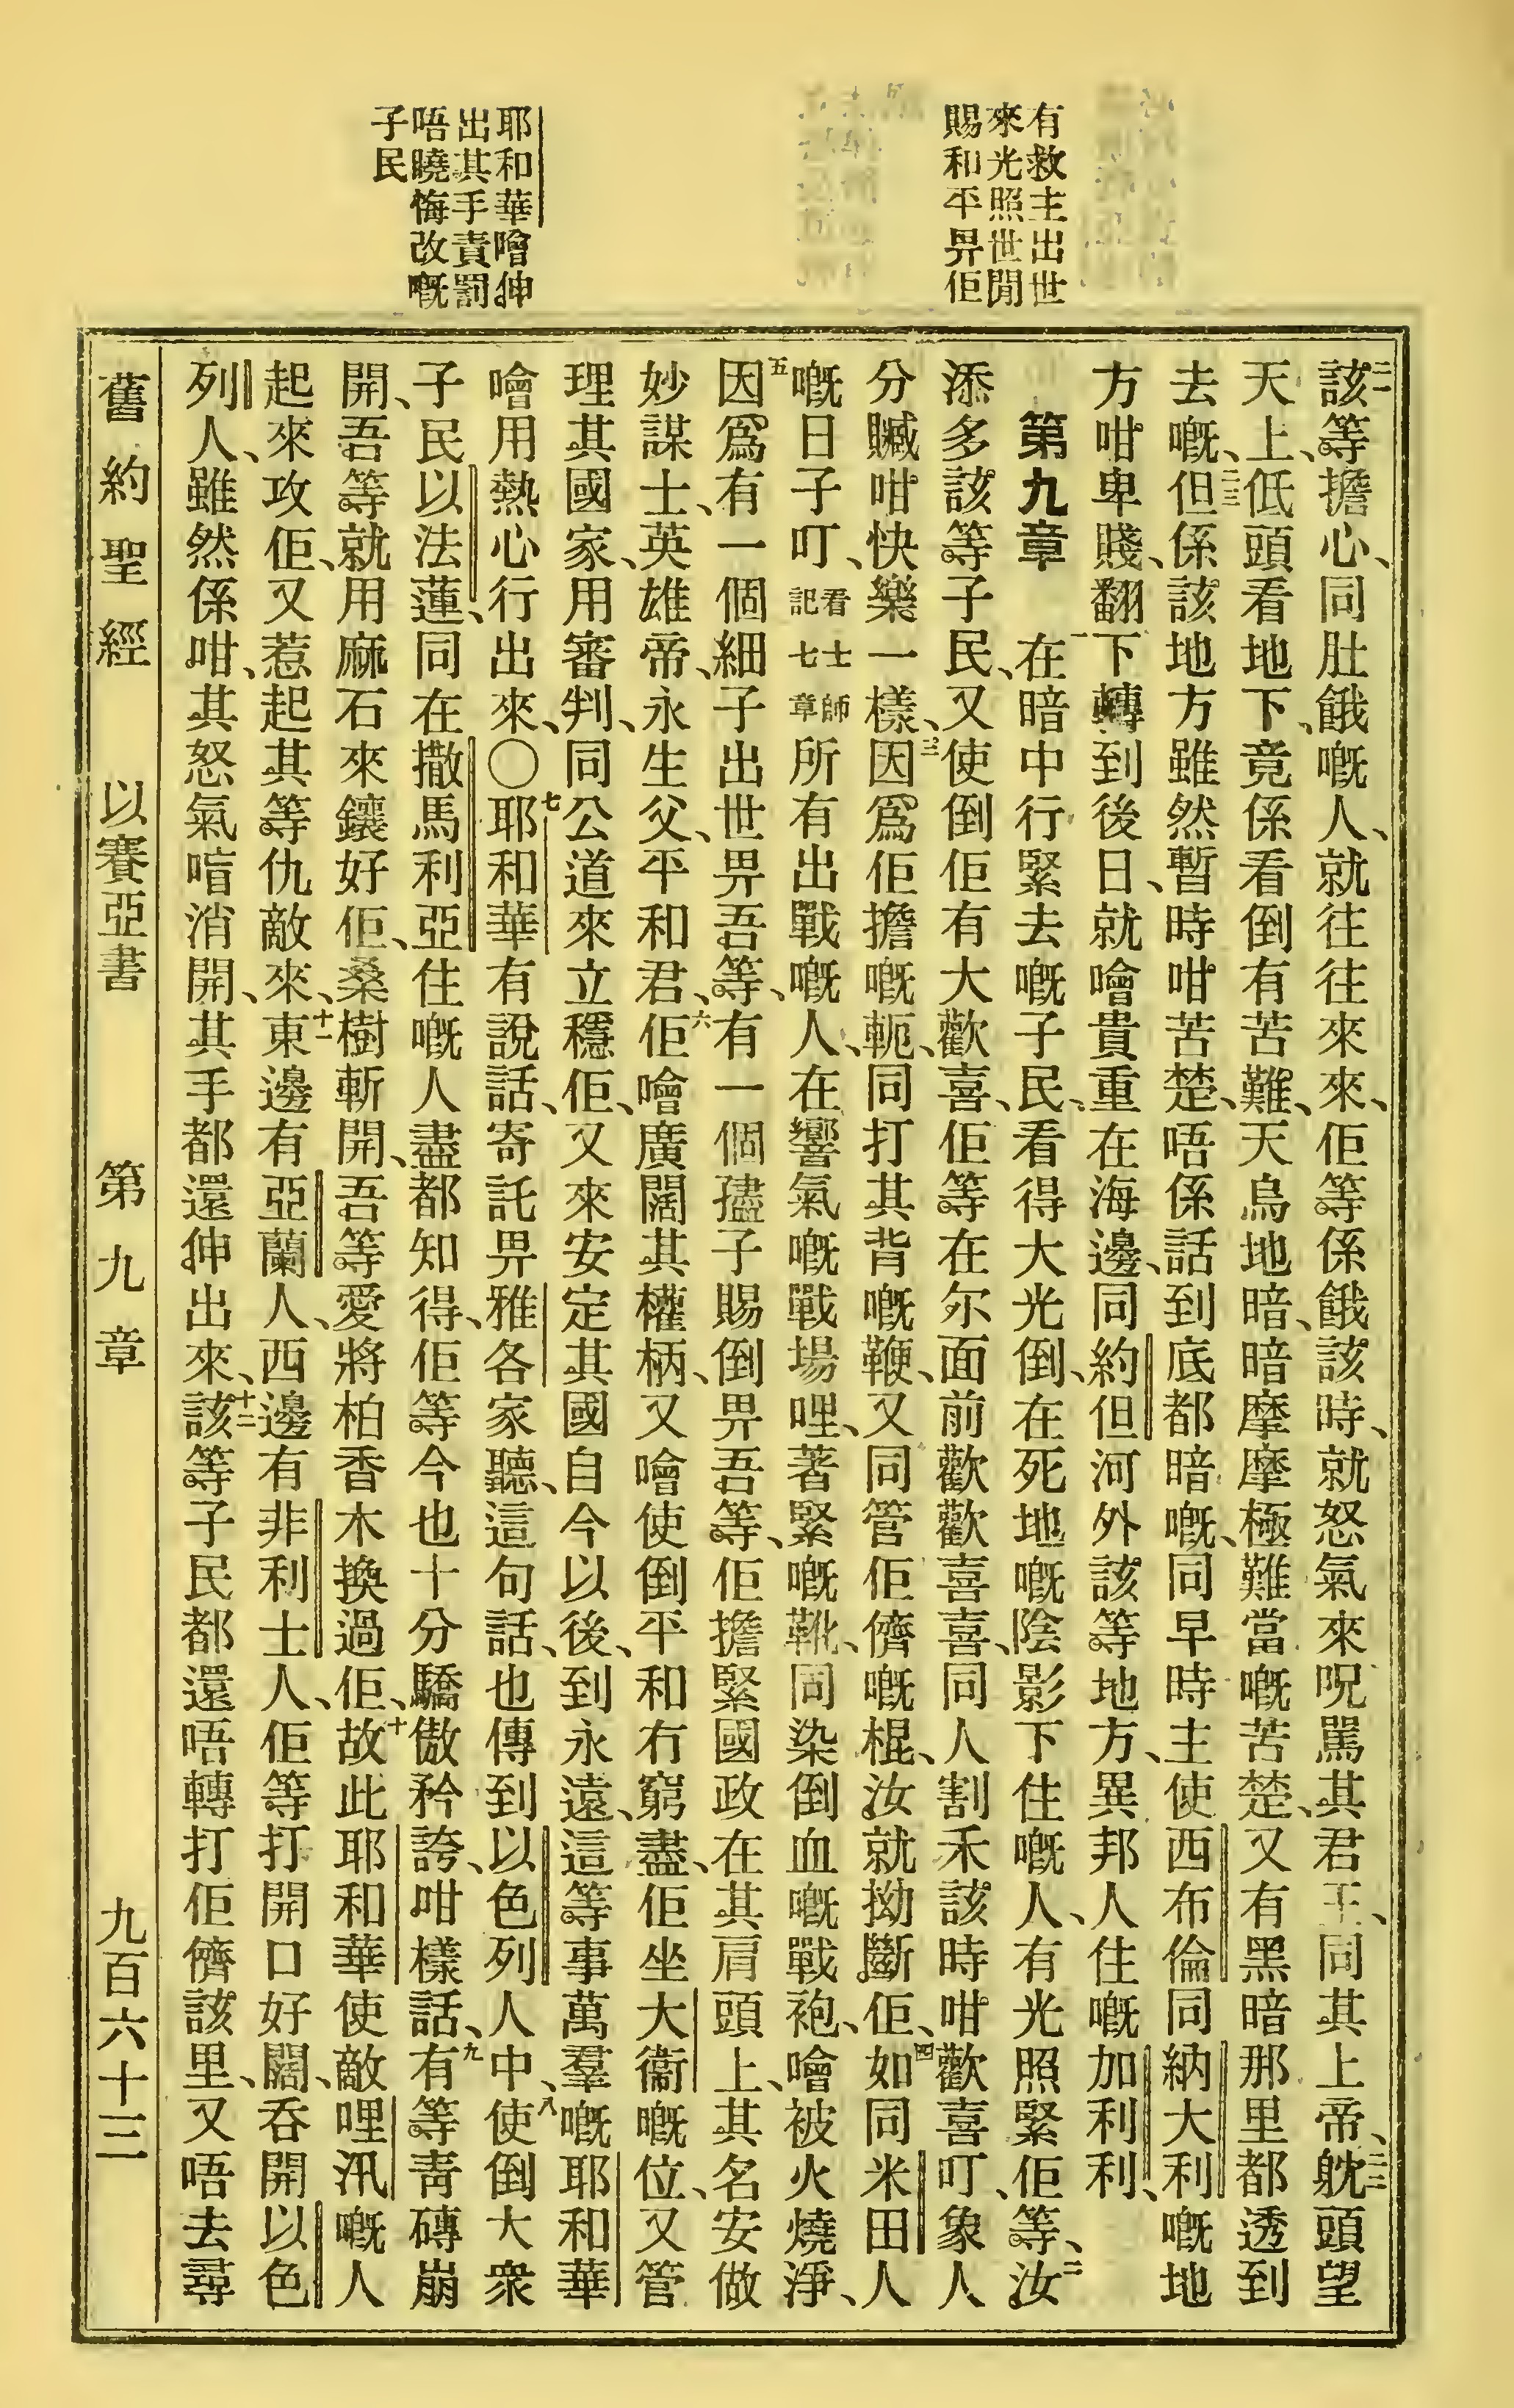 有救主出世
來光照世間
賜和平畀佢
耶和華噲伸
出其手責罰
唔曉悔改嘅
子民
二一該等擔心、同肚餓嘅人、就往往來來、佢等係餓該時、就怒氣來呪駡其君王、同其上帝、二二覘頭望
天上、低頭看地下、竟係看倒有苦難、天烏地暗、暗摩摩極難當嘅苦楚、又有黑暗那里都透到
去嘅、二三但係該地方雖然暫時咁苦楚、唔係話到底都暗嘅、同早時主使西布倫同納大利嘅地
方咁卑賤、翻下轉到後日、就噲貴重在海邊、同約但河外該等地方、異邦人住嘅加利利、
第九章 一在暗中行緊去嘅子民、看得大光倒、在死地嘅陰影下住嘅人、有光照緊佢等、二汝
添多該等子民、又使倒佢有大歡喜、佢等在尔面前歡歡喜喜、同人割禾該時咁歡喜叮、象人
分贓咁快樂一樣、三因爲佢擔嘅軛、同打其背嘅鞭、又同管佢儕嘅棍、汝就拗斷佢、四如同米田人
嘅日子叮、看士師記七章所有出戰嘅人、在響氣嘅戰場哩、著緊嘅靴、同染倒血嘅戰袍、噲被火燒淨、
五因爲有一個細子出世畀吾等、有一個孻子賜倒畀吾等、佢擔緊國政在其肩頭上、其名安做
妙謀士、英雄帝、永生父、平和君、六佢噲廣闊其權柄、又噲使倒平和冇窮盡、佢坐大衛嘅位、又管
理其國家、用審判、同公道來立穩佢、又來安定其國自今以後、到永遠、這等事萬羣嘅耶和華
噲用熱心行出來、〇七耶和華有說話、寄託畀雅各家聽、這句話、也傳到以色列人中、八使倒大衆
子民以法蓮、同在撒馬利亞住嘅人盡都知得、佢等今也十分驕傲矜誇、咁樣話、九有等靑磚崩
開、吾等就用麻石來鑲好佢、桑樹斬開、吾等愛將柏香木換過佢、十故此耶和華使敵哩汛嘅人
起來攻佢、又惹起其等仇敵來、十一東邊有亞蘭人、西邊有非利士人、佢等打開口好闊、吞開以色
列人、雖然係咁、其怒氣唔消開、其手都還伸出來、十二該等子民都還唔轉打佢儕該里、又唔去尋
舊約聖經 以賽亞書 第九章 九百六十三